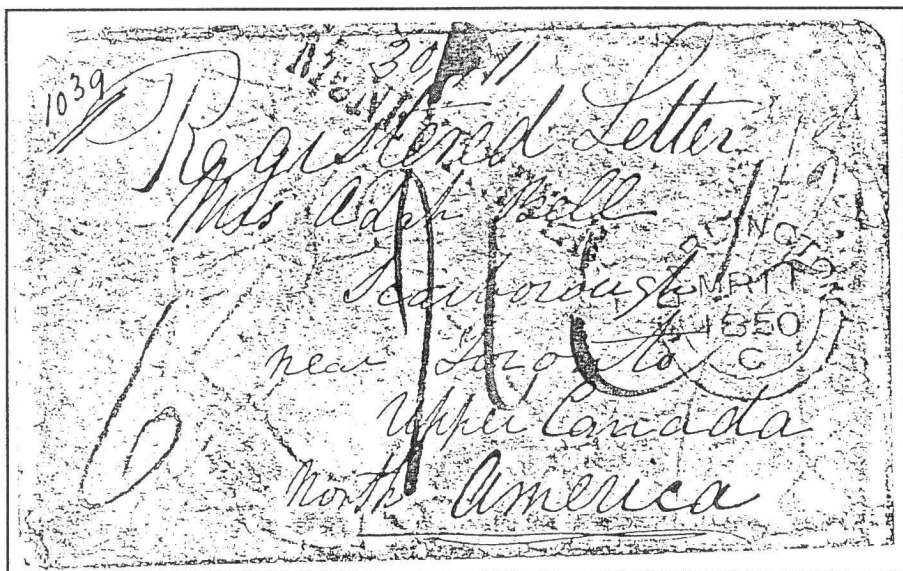 1039
30 11
Registered Letter
Mrs Adah Bell
Scarborough
near Toronto
Upper Canada
North America
6
MR 11
1850
C